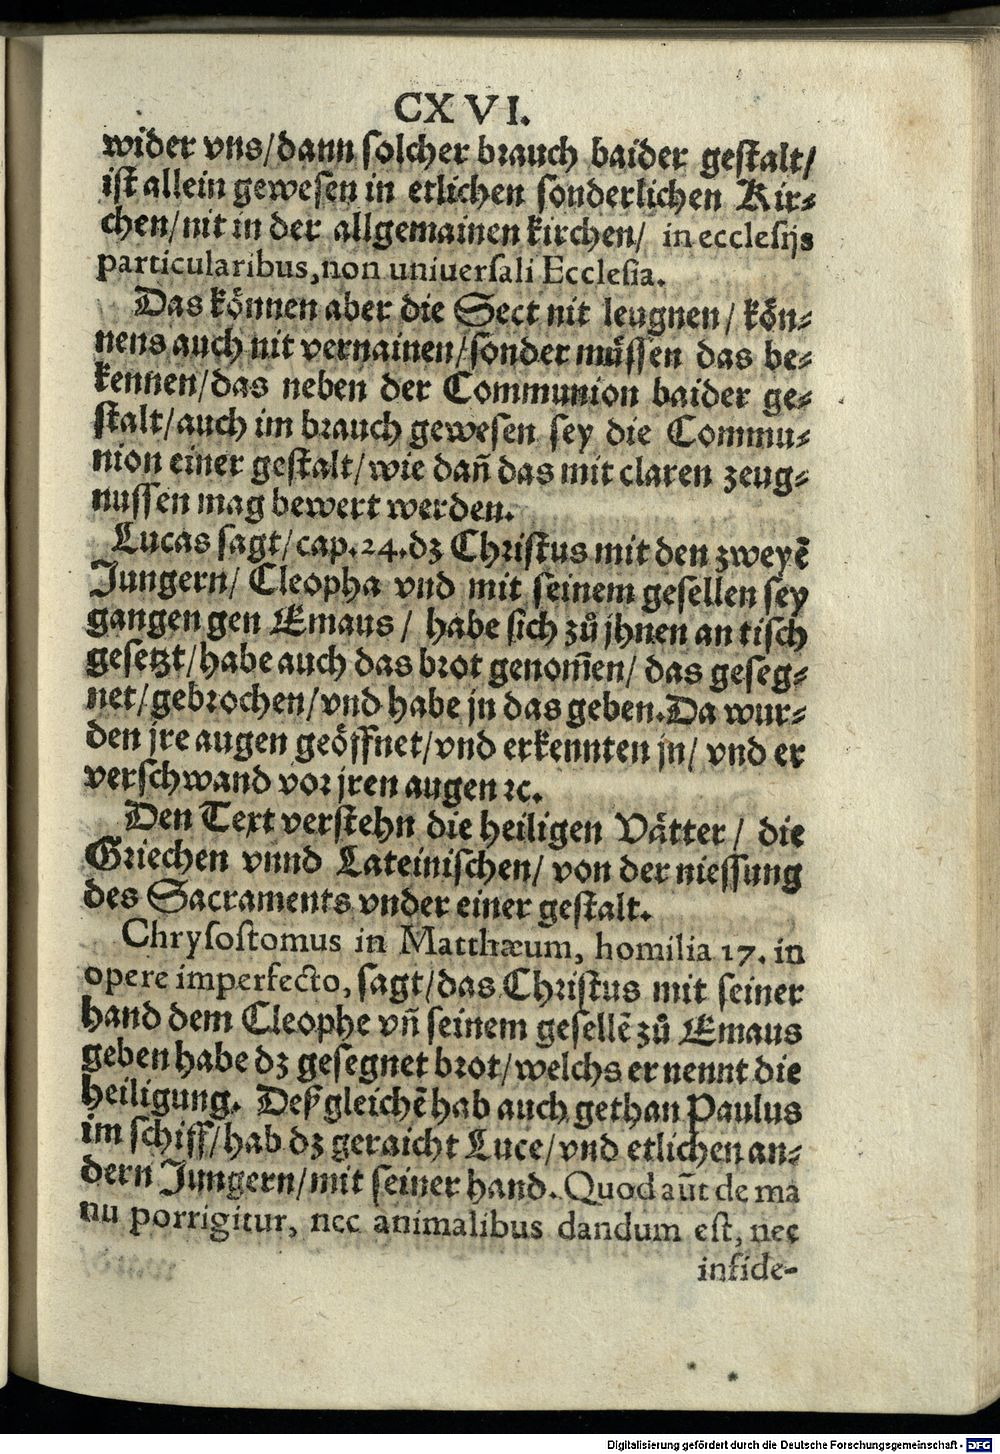 CXVI.
wider vns/dann solcher brauch baider gestalt/
ist allein gewesen in etlichen sonderlichen Kir⸗
chen/nit in der allgemainen kirchen/ in ecclesijs
particularibus, non uniuersali Ecclesia.
Das können aber die Sect nit leugnen/ kön⸗
nens auch nit vernainen/sonder müssen das be⸗
kennen/das neben der Communion baider ge⸗
stalt/auch im brauch gewesen sey die Commu⸗
nion einer gestalt/wie dañ das mit claren zeug⸗
nussen mag bewert werden.
Lucas sagt/cap.24.dz Christus mit den zweyẽ
Jungern/ Cleopha vnd mit seinem gesellen sey
gangen gen Emaus/ habe sich zů jhnen an tisch
gesetzt/habe auch das brot genom̃en/ das geseg⸗
net/gebrochen/vnd habe jn das geben.Da wur⸗
den jre augen geöffnet/vnd erkennten jn/ vnd er
verschwand vor jren augen ꝛc.
Den Text verstehn die heiligen Vätter/ die
Griechen vnnd Lateinischen/ von der niessung
des Sacraments vnder einer gestalt.
Chrysostomus in Matthæum, homilia 17. in
opere imperfecto, sagt/das Christus mit seiner
hand dem Cleophe vñ seinem gesellẽ zů Emaus
geben habe dz gesegnet brot/welchs er nennt die
heiligung. Deßgleichẽ hab auch gethan Paulus
im schiff/hab dz geraicht Luce/vnd etlichen an⸗
dern Jungern/mit seiner hand. Quod aũt de ma
nu porrigitur, nec animalibus dandum est, nec
infide-
Digitalisierung gefördert durch die Deutsche Forschungsgemeinschaft - DFG